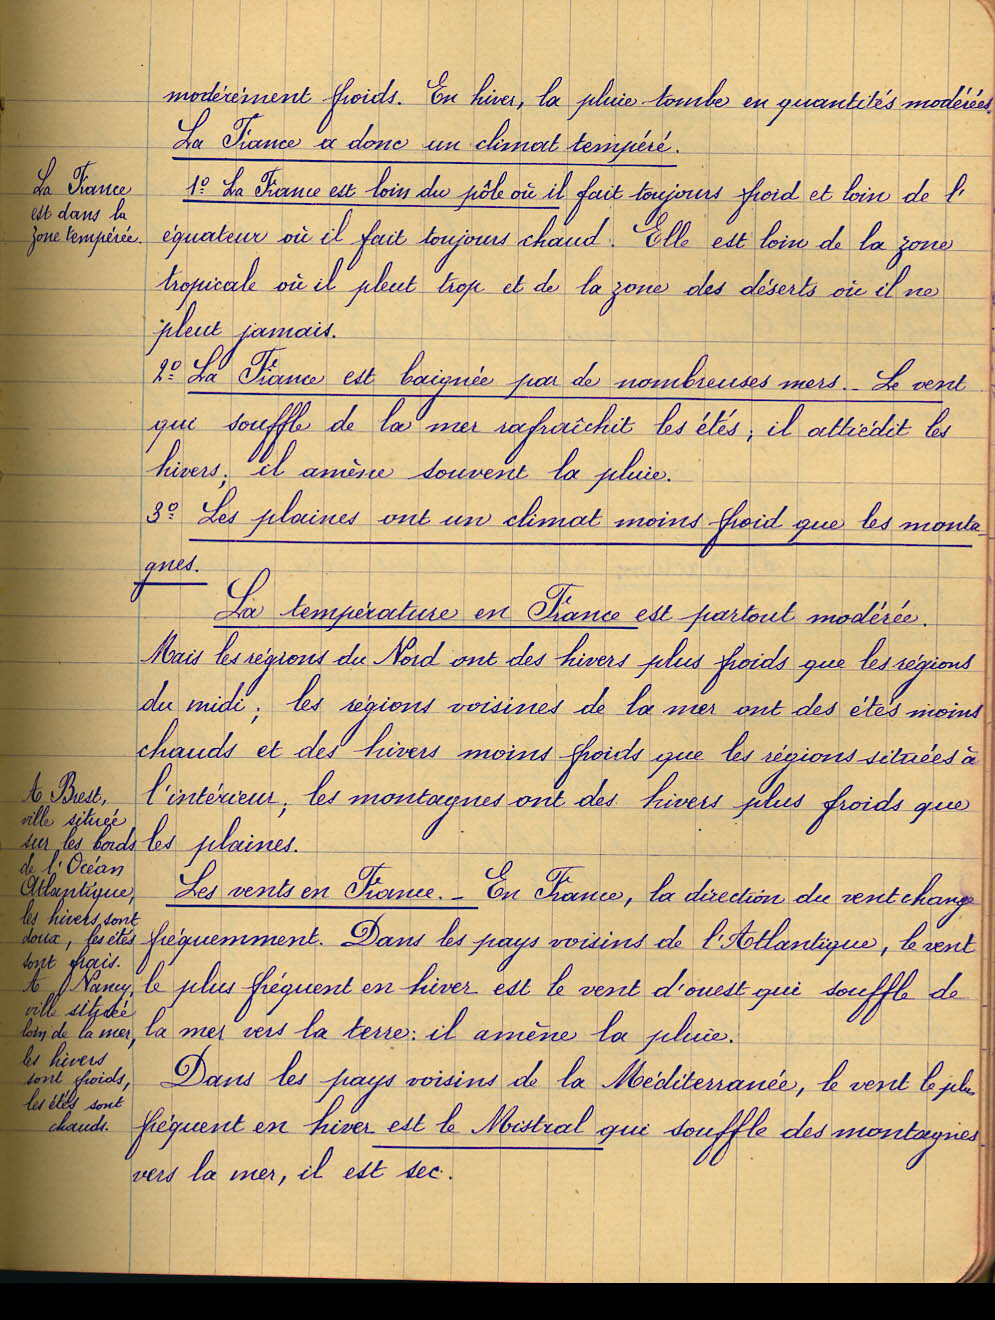 modérément froids. En hiver, la pluie tombe en quantités modérées.
La France a donc un climat tempéré.
La France
est dans la
zone tempérée.
1º La France est loin du pôle où il fait toujours froid et loin de l'
équateur où il fait toujours chaud. Elle est loin de la zone
tropicale où il pleut trop et de la zone des déserts où il ne
pleut jamais.
2º La France est baignée par de nombreuses mers. - Le vent
qui souffle de la mer rafraîchit les étés ; il attiédit les
hivers ; il amène souvent la pluie.
3º Les plaines ont un climat moins froid que les monta-
gnes.
La température en France est partout modérée.
Mais les régions du Nord ont des hivers plus froids que les régions
du midi ; les régions voisines de la mer ont des étés moins
chauds et des hivers moins froids que les régions situées à
l'intérieur ; les montagnes ont des hivers plus froids que
les plaines.
A Brest,
ville située
sur les bords
de l'Océan
Atlantique,
les hivers sont
doux, les étés
sont frais.
A Nancy,
ville située
loin de la mer,
les hivers
sont froids,
les étés sont
chauds.
Les vents en France. - En France, la direction du vent change
fréquemment. Dans les pays voisins de l'Atlantique, le vent
le plus fréquent en hiver est le vent d'ouest qui souffle de
la mer vers la terre : il amène la pluie.
Dans les pays voisins de la Méditerranée, le vent le plus
fréquent en hiver est le Mistral qui souffle des montagnes
vers la mer, il est sec.